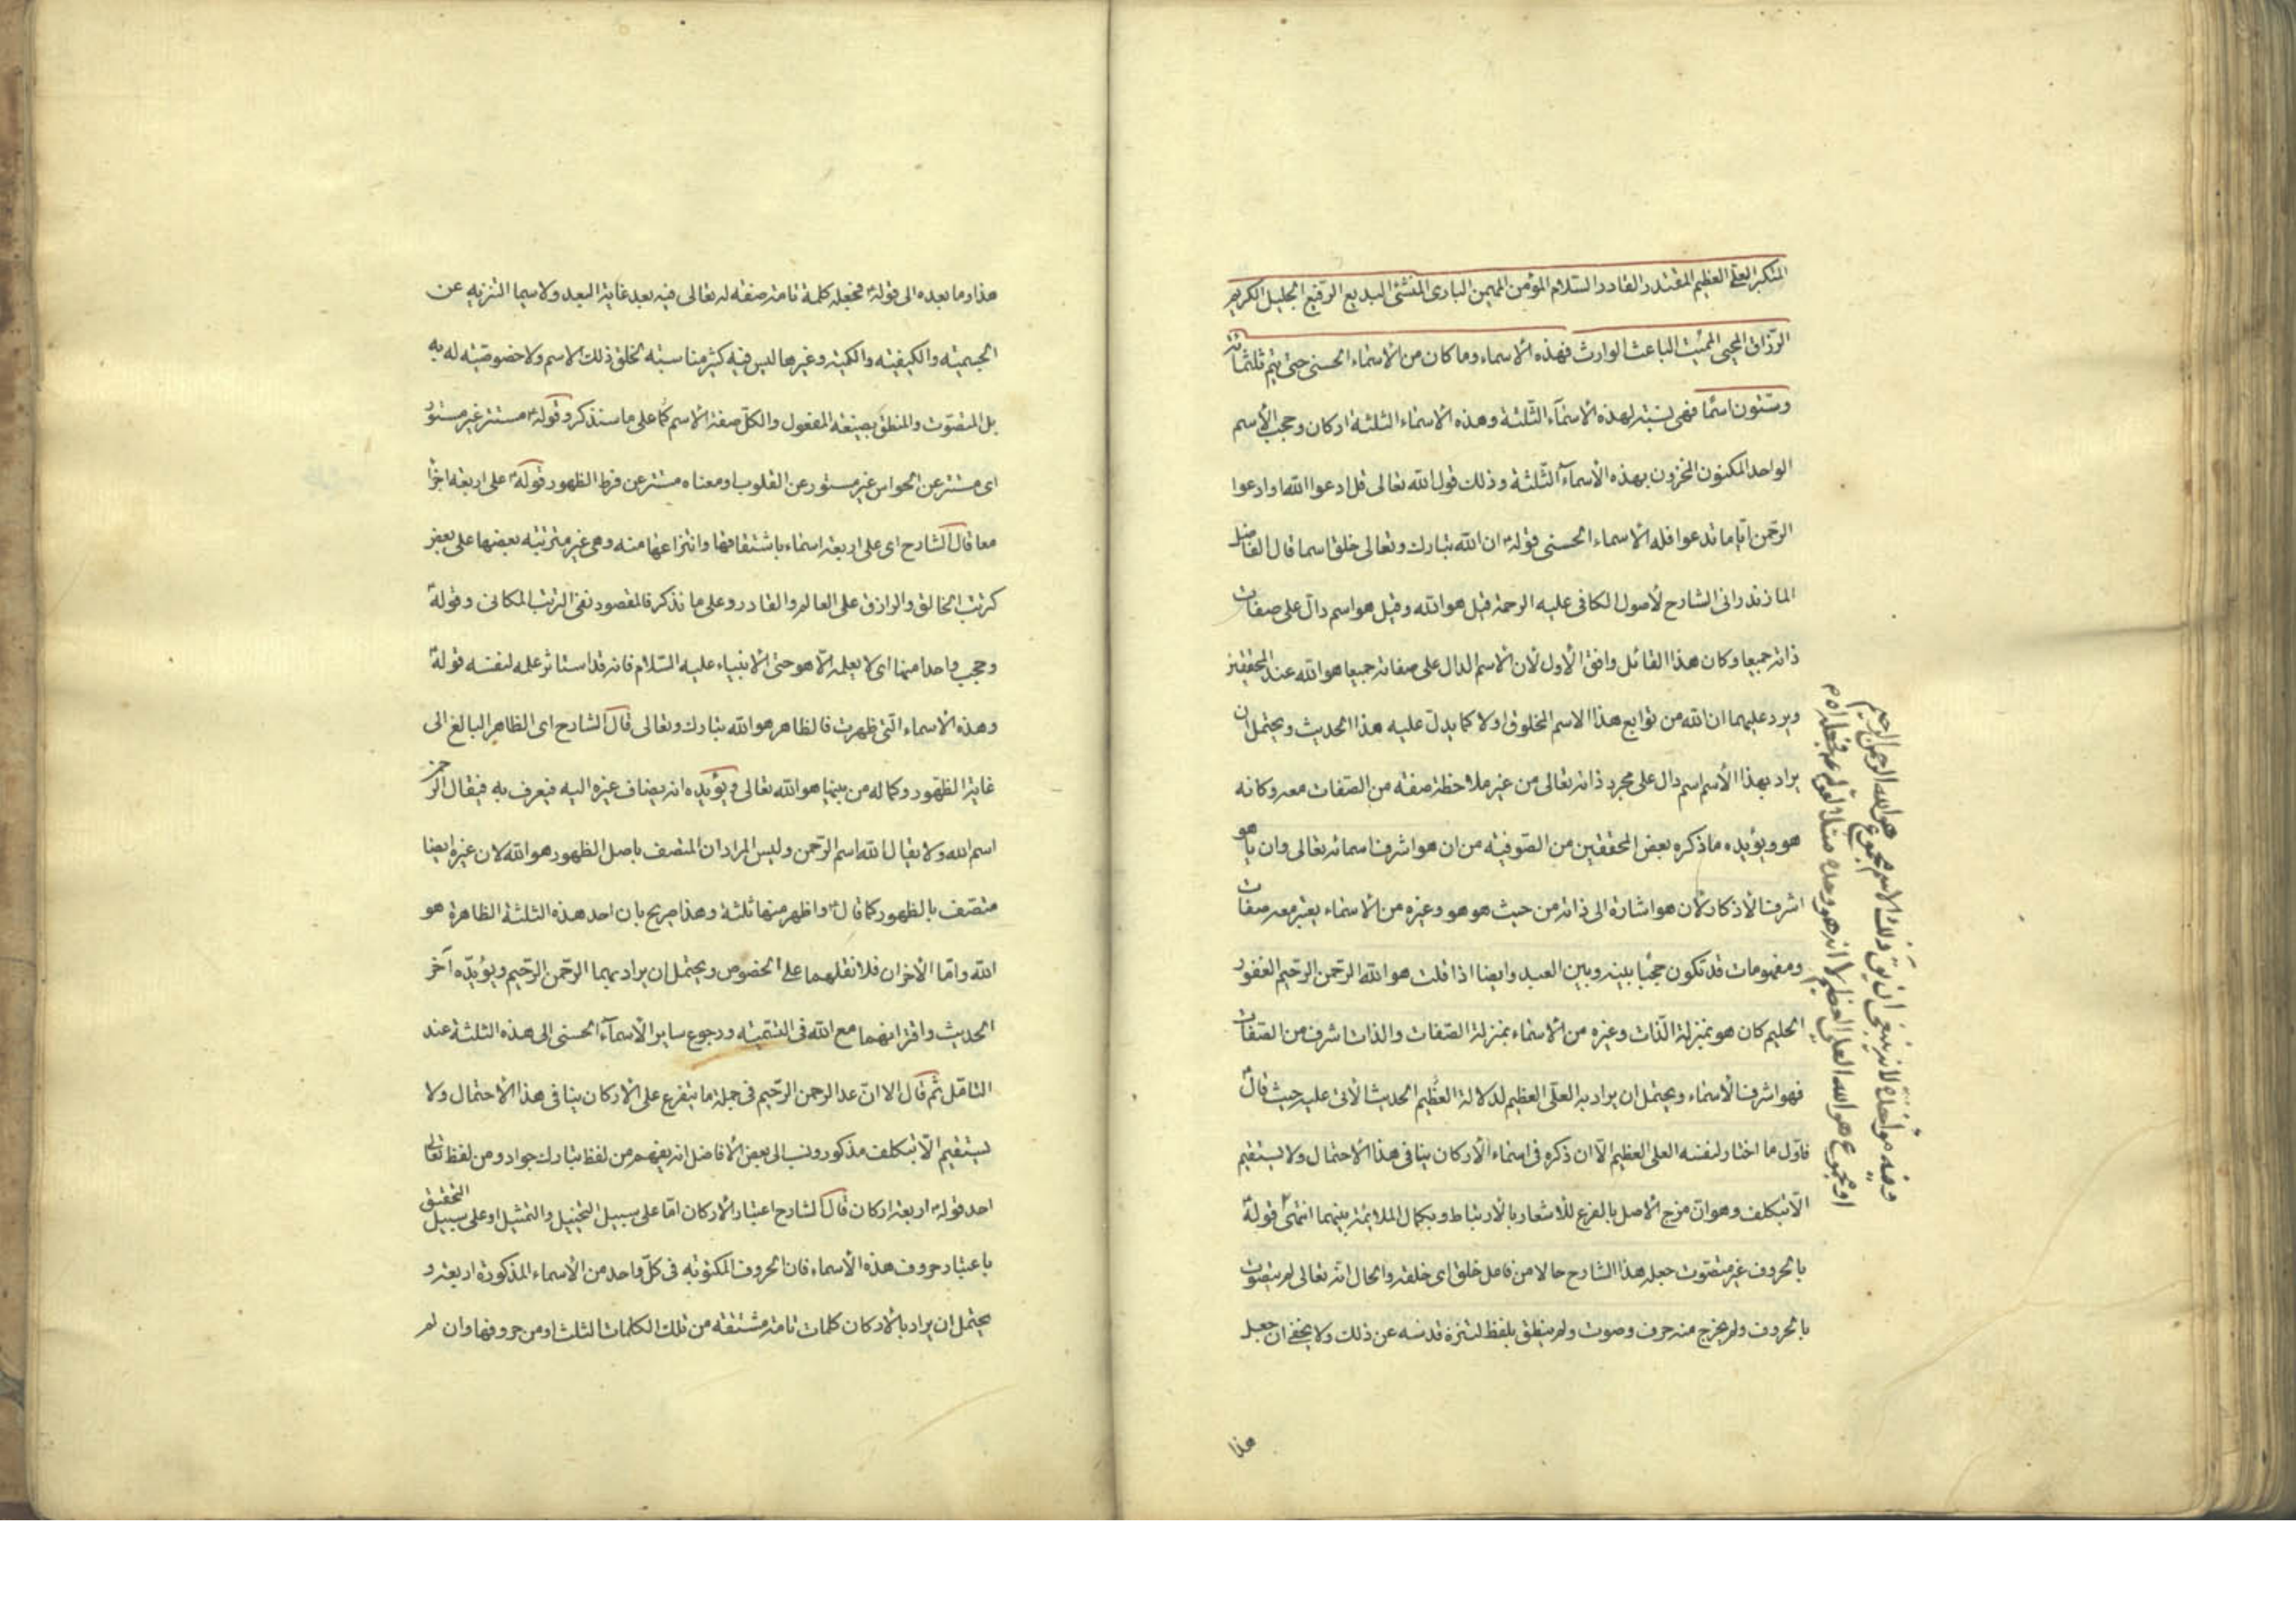 المتكبر العلي العظيم المقتدر القادر السلام المؤمن المهيمن البارئ المنشئ البديع الرفيع الجليل الكريم
الرزاق المحيي المميت الباعث الوارث فهذه الاسماء وما كان من الاسماء الحسنى حتى يتم ثلثمائة
وستون اسما فهي نسبة لهذه الاسماء الثلثة وهذه الاسماء الثلثة اركان وحجب الاسم
الواحد المكنون المخزون بهذه الاسماء الثلثة وذلك قول الله تعالى قل ادعوا الله او ادعوا
الرحمن اياما تدعوا فله الاسماء الحسنى قوله ان الله تبارك وتعالى خلق اسما قال الفاضل
المازندراني الشارح لأصول الكافي عليه الرحمة قيل هو الله وقيل هو اسم دال على صفات
ذاته جميعا وكان هذا القائل وافق الأول لأن الاسم الدال على صفاته جميعا هو الله عند المحققين
ويرد عليهما ان الله من توابع هذا الاسم المخلوق اولا كما يدل عليه هذا الحديث ويحتمل ان
يراد بهذا الأسم اسم دال على مجرد ذاته تعالى من غير ملاحظة صفة من الصفات معه وكانه
هو ويؤيده ما ذكره بعض المحققين من الصوفية من ان هو اشرف اسمائه تعالى وان يا هو
اشرف الأذكار لأن هو اشارة الى ذاته من حيث هو هو وغيره من الاسماء يعتبر معه صفات
ومفهومات قد تكون حجبا بينه وبين العبد وايضا اذا قلت هو الله الرحمن الرحيم الغفور
الحليم كان هو بمنزلة الذات وغيره من الاسماء بمنزلة الصفات والذات اشرف من الصفات
فهو اشرف الأسماء ويحتمل ان يراد به العلي العظيم لدلالة العظيم الحديث الأتي عليه حيث قال
فاول ما اختار لنفسه العلي العظيم الا ان ذكره في اسماء الأركان ينافي هذا الاحتمال ولا يستقيم
الا بتكلف وهو ان مزج الاصل بالفرع للاشعار بالارتباط وبكمال الملايمة بينهما انتهى قوله
بالحروف غير متصوت جعله هذا الشارح حالا من فاعل خلق اي خلقه والحال انه تعالى لم يتصوت
بالحروف ولم يخرج منه حرف وصوت ولم ينطق بلفظ لتنزه قدسه عن ذلك ولا يخفى ان جعل
هذا
هو الله الرحمن الرحيم
وفيه مؤاخذة لانه ينبغي ان يق وذلك الاسم مجموع
او مجموع هو الله العلي العظيم لا انه هو وحده مثلا لقوله ع فجعله اه م
هذا وما بعده الى قوله فجعله كلمة تامة صفة له تعالى فيه بعد غاية البعد ولا سيما التنزيه عن
الجسمية والكيفية والكمية وغيرها ليس فيه كثير مناسبة لخلق ذلك الاسم ولا خصوصية له به
بل المتصوت والمنطق بصيغة المفعول والكل صفة الاسم كما على ما سنذكر وقوله مستتر غير مستور
اي مستتر عن الحواس غير مستور عن القلوب او معناه مستتر عن فرط الظهور قوله على اربعة اجزا
معا قال الشارح اي على اربعة اسماء باشتقاقها وانتزاعها منه وهي غير مترتبة بعضها على بعض
كرتب الخالق والرازق على العالم والقادر وعلى ما نذكر فالمقصود نفي الرتب المكاني وقوله
وحجب واحدا منها اي لا يعلمه الا هو حتى الانبياء عليه السلام فانه قد استاثر علمه لنفسه قوله
وهذه الاسماء التي ظهرت فالظاهر هو الله تبارك وتعالى قال الشارح اي الظاهر البالغ الى
غاية الظهور وكماله من بينها هو الله تعالى ويؤيده انه يضاف غيره اليه فيعرف به فيقال الرحمن
اسم الله ولا يقال الله اسم الرحمن وليس المراد ان المتصف باصل الظهور هو الله لان غيره ايضا
متصف بالظهور كما قال واظهر منها ثلثة وهذا صريح بان احد هذه الثلثة الظاهرة هو
الله واما الأخران فلا نعلمهما على الخصوص ويحتمل ان يراد بهما الرحمن الرحيم ويؤيده آخر
الحديث واقترانهما مع الله في التسمية ورجوع ساير الأسماء الحسنى الى هذه الثلثة عند
التامل ثم قال الا ان عد الرحمن الرحيم في جملة ما يتفرع على الاركان ينافي هذا الأحتمال ولا
يستقيم الا بتكلف مذكور ونسب الى بعض الأفاضل انه يفهم من لفظ تبارك جواد ومن لفظ تعالى
احد قوله اربعة اركان قال الشارح اعتبار الأركان اما على سبيل التخييل والتمثيل او على سبيل التحقيق
باعتبار حروف هذه الأسماء فان الحروف المكتوبة في كل واحد من الاسماء المذكورة اربعة و
يحتمل ان يراد بالاركان كلمات تامة مشتقة من تلك الكلمات الثلث او من حروفها وان لم